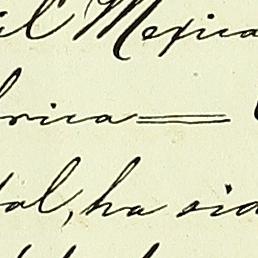 al Mexica
brica=
tal, ha sid